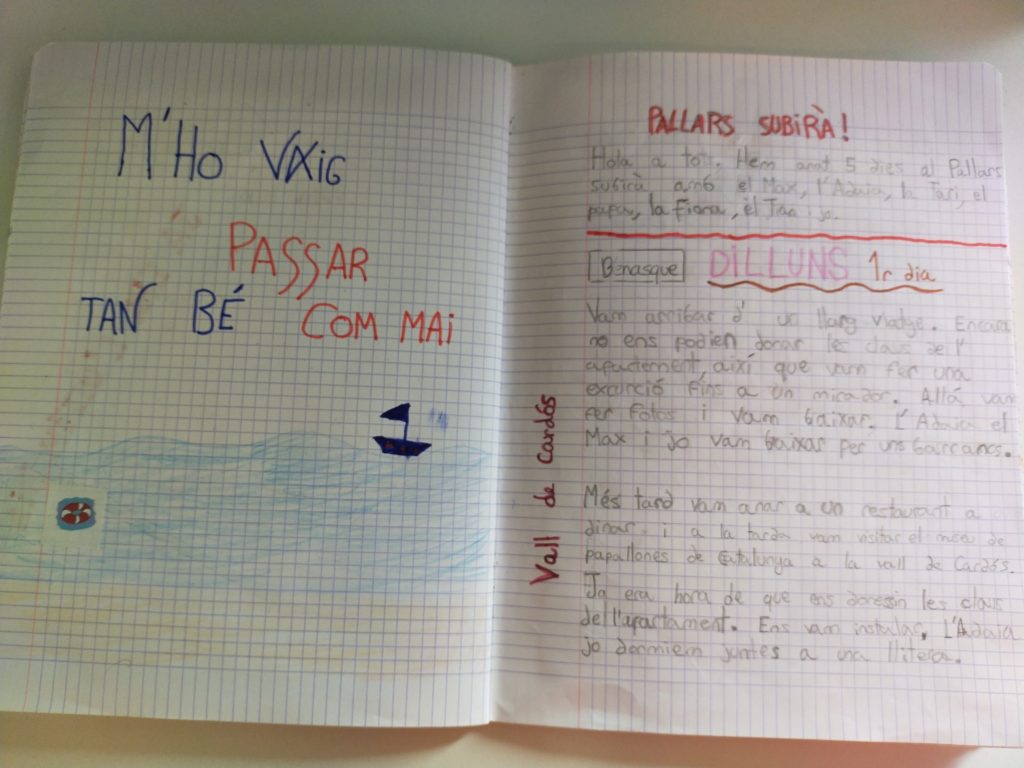 M'HO VAIG
PASSAR
TAN BÉ COM MAI
PALLARS SUBIRÀ!
Hola a tots. Hem anat 5 dies al Pallars
subirà, amb el Max, l'Aduia, la Tari, el
papa, la Fiona, el Jan i jo.
Benasque DILLUNS 1r dia
Vam arribar d' un llarg viatge. Encara
no ens podien donar les claus de l'
apartement, així que vam fer una
excurció fins a un mirador. Allá vam
fer fotos i vam baixar. L'Aduia el
Max i jo vam baixar per uns barrancs.
Vall de Cardós
Més tard vam anar a un restaurant a
dinar. i a la tarda vam visitar el museu de
papallones de Catalunya a la vall de Cardós.
Ja era hora de que ens donessin les claus
de l'apartament. Ens vam instalar. L'Aduia
jo dormiem juntes a una llitera.